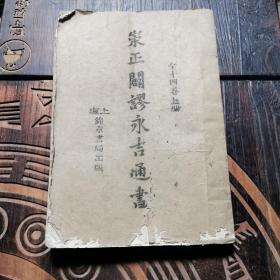 全十四卷上编
崇正闢謬永吉通書
上海
錦章書局出版